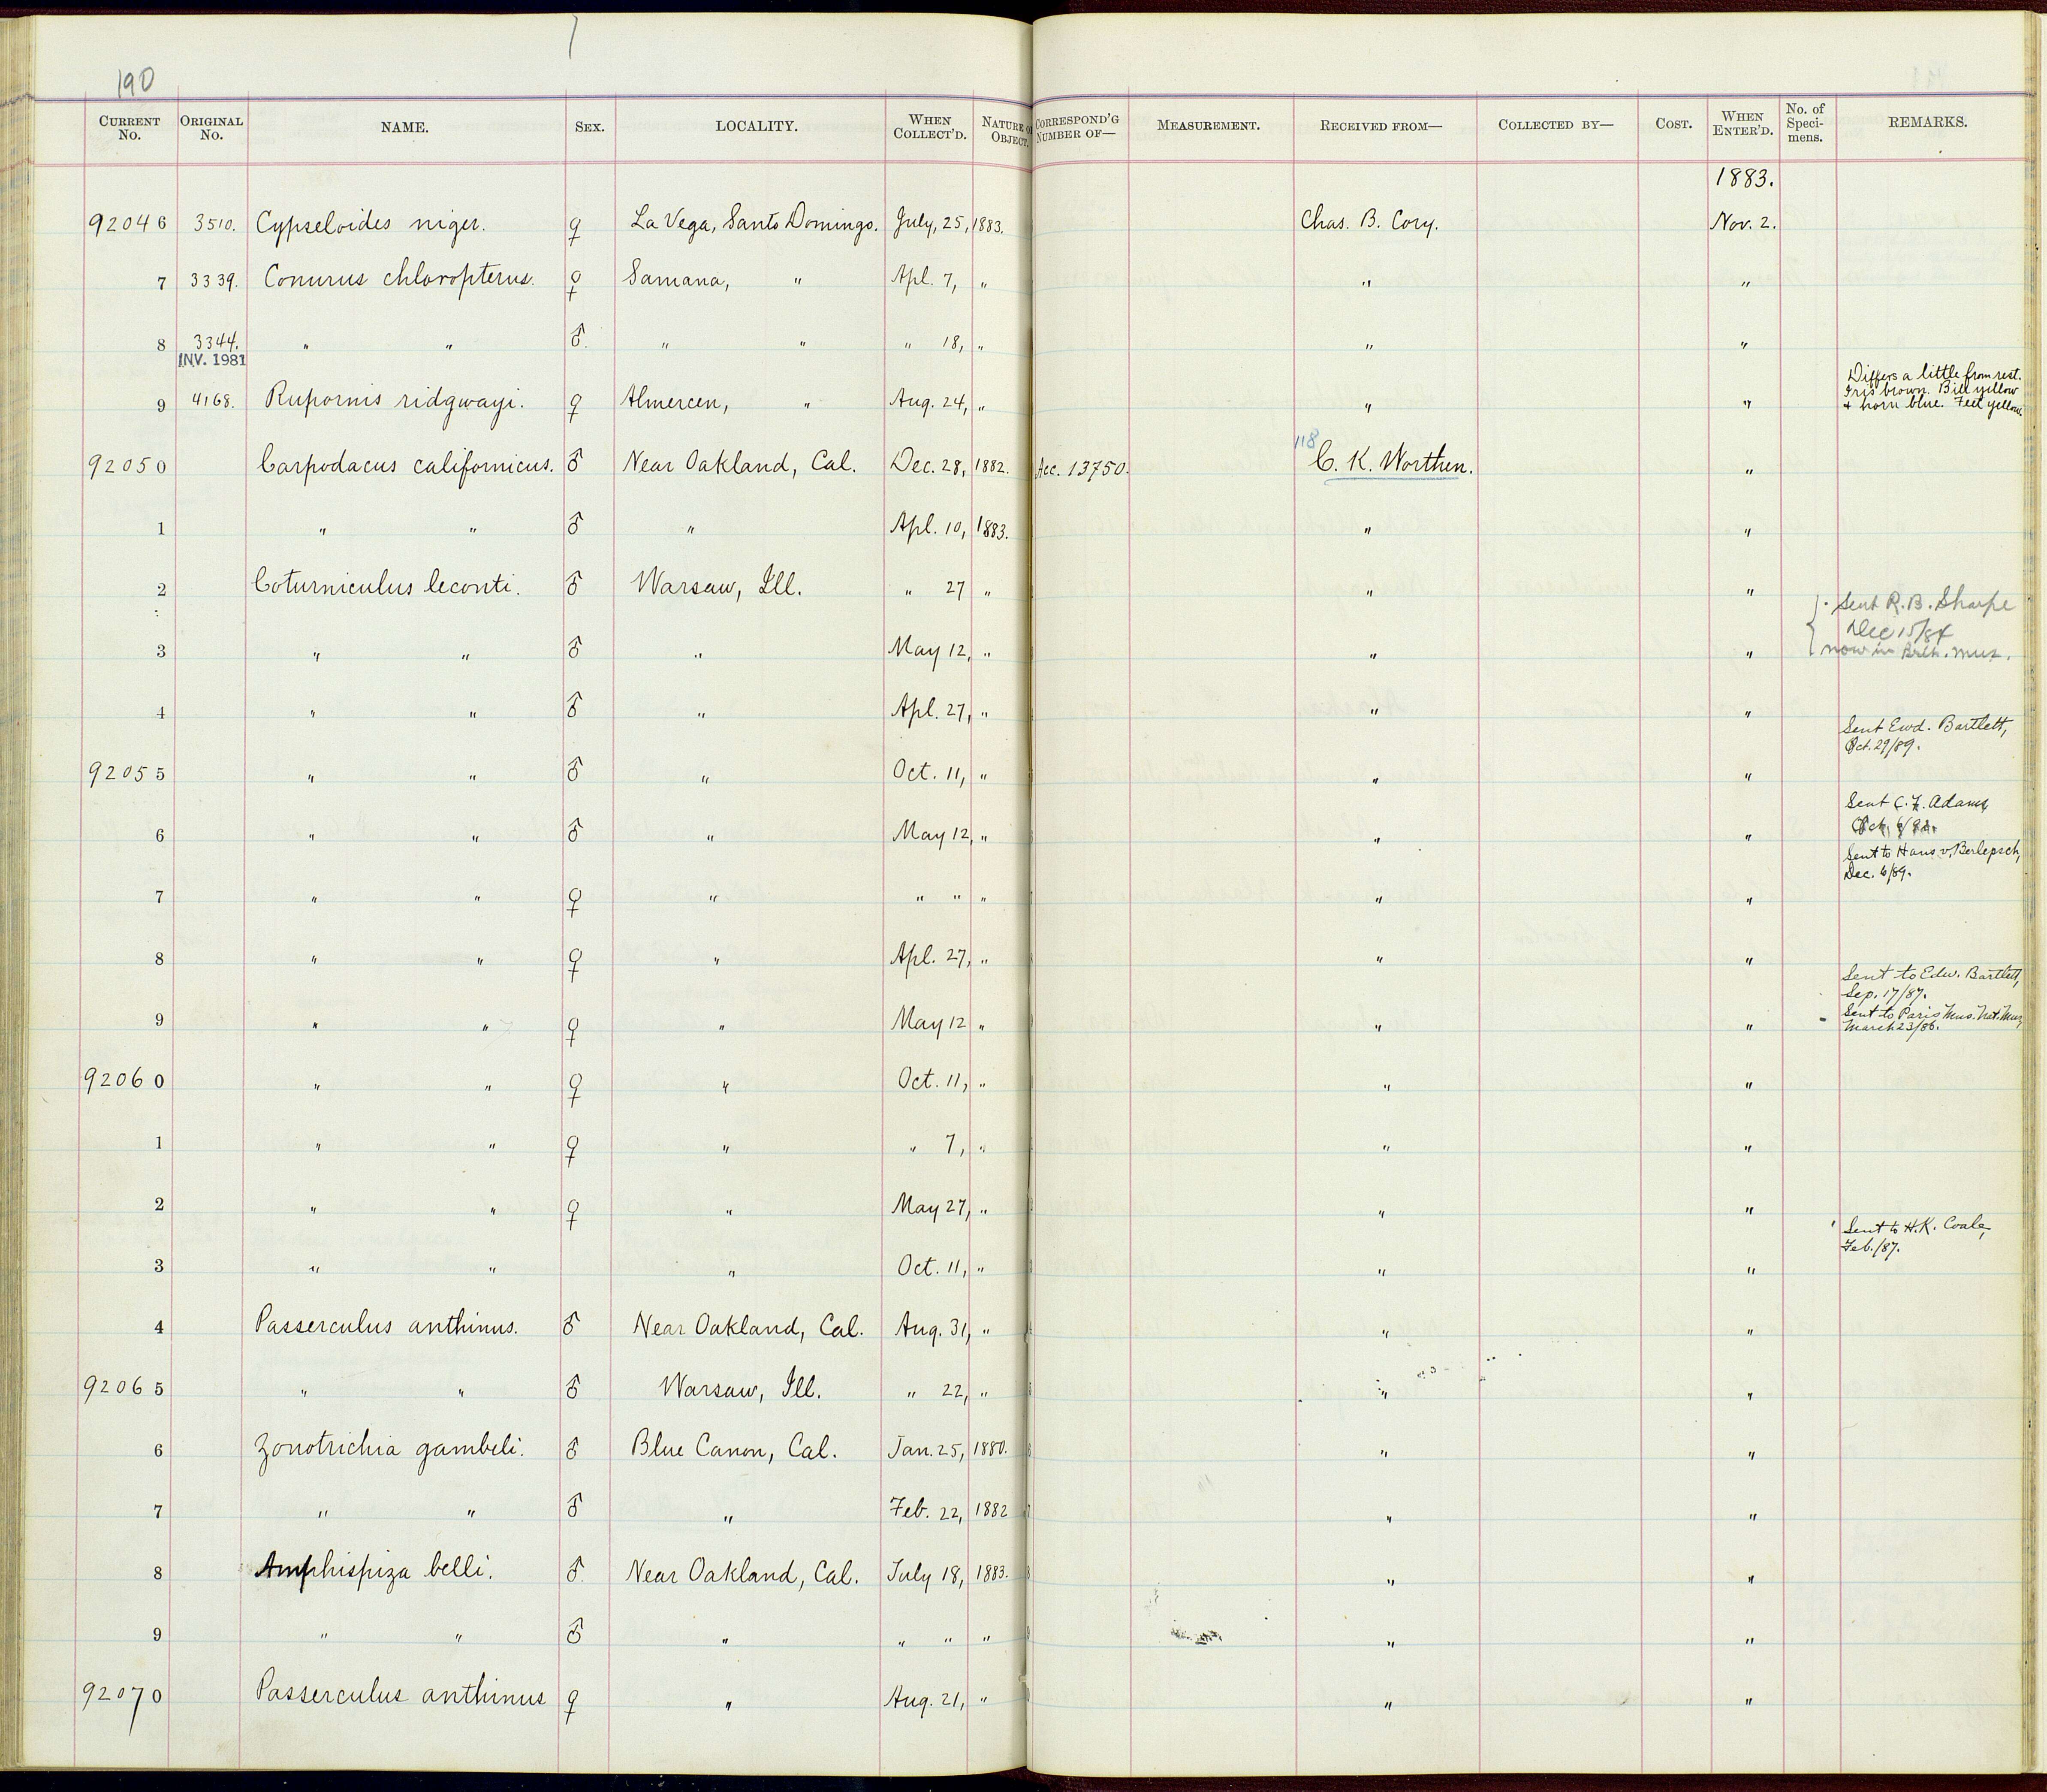 190
CURRENT No. ORIGINAL No. NAME. SEX. LOCALITY. WHEN COLLECT'D. NATURE OF OBJECT. CORRESPOND'G NUMBER OF— MEASUREMENT. RECEIVED FROM— COLLECTED BY— COST. WHEN ENTER'D. No. of Speci-mens. REMARKS.
1883.
92046 3510. Cypseloides niger. ♀ La Vega, Santo Domingo. July, 25, 1883. Chas. B. Cory. Nov. 2.
7 3339. Conurus chloropterus. ♀ Samana, " Apl. 7, " " "
8 3344. " " ♂ " " " 18, " " "
INV. 1981
9 4168. Rupornis ridgwayi. ♀ Almercen, " Aug. 24, " " " Differs a little from rest. Iris brown. Bill yellow + horn blue. Feet yellow.
118
92050 Carpodacus californicus. ♂ Near Oakland, Cal. Dec. 28, 1882. Acc. 13750. C. K. Worthen. "
1 " " ♂ " Apl. 10, 1883. " "
2 Coturniculus leconti. ♂ Warsaw, Ill. " 27 " " " Sent R. B. Sharpe
Dec 15/84
3 " " ♂ " May 12, " " " now in Brit. Mus.
4 " " ♂ " Apl. 27, " " "
Sent Ewd. Bartlett,
Oct. 29/89.
92055 " " ♂ " Oct. 11, " " "
Sent C. F. Adams
6 " " ♂ " May 12, " " "
Sent to Hans v. Berlepsch,
Dec. 6/89.
7 " " ♀ " " " " " "
8 " " ♀ " Apl. 27, " " "
Sent to Edw. Bartlett,
Sep. 17/87.
9 " " ♀ " May 12 " " " Sent to Paris Mus. Nat.
March 23/86.
92060 " " ♀ " Oct. 11, " " "
1 " " ♀ " " 7, " " "
2 " " ♀ " May 27, " " "
Sent to H. K. Coale,
Feb./87.
3 " " " Oct. 11, " " "
4 Passerculus anthinus. ♂ Near Oakland, Cal. Aug. 31, " " "
92065 " " ♂ Warsaw, Ill. " 22, " " "
6 Zonotrichia gambeli. ♂ Blue Canon, Cal. Jan. 25, 1880. " "
7 " " ♂ " Feb. 22, 1882 " "
8 Amphispiza belli. ♂ Near Oakland, Cal. July 18, 1883. " "
9 " " ♂ " " " " " "
92070 Passerculus anthinus ♀ " Aug. 21, " " "